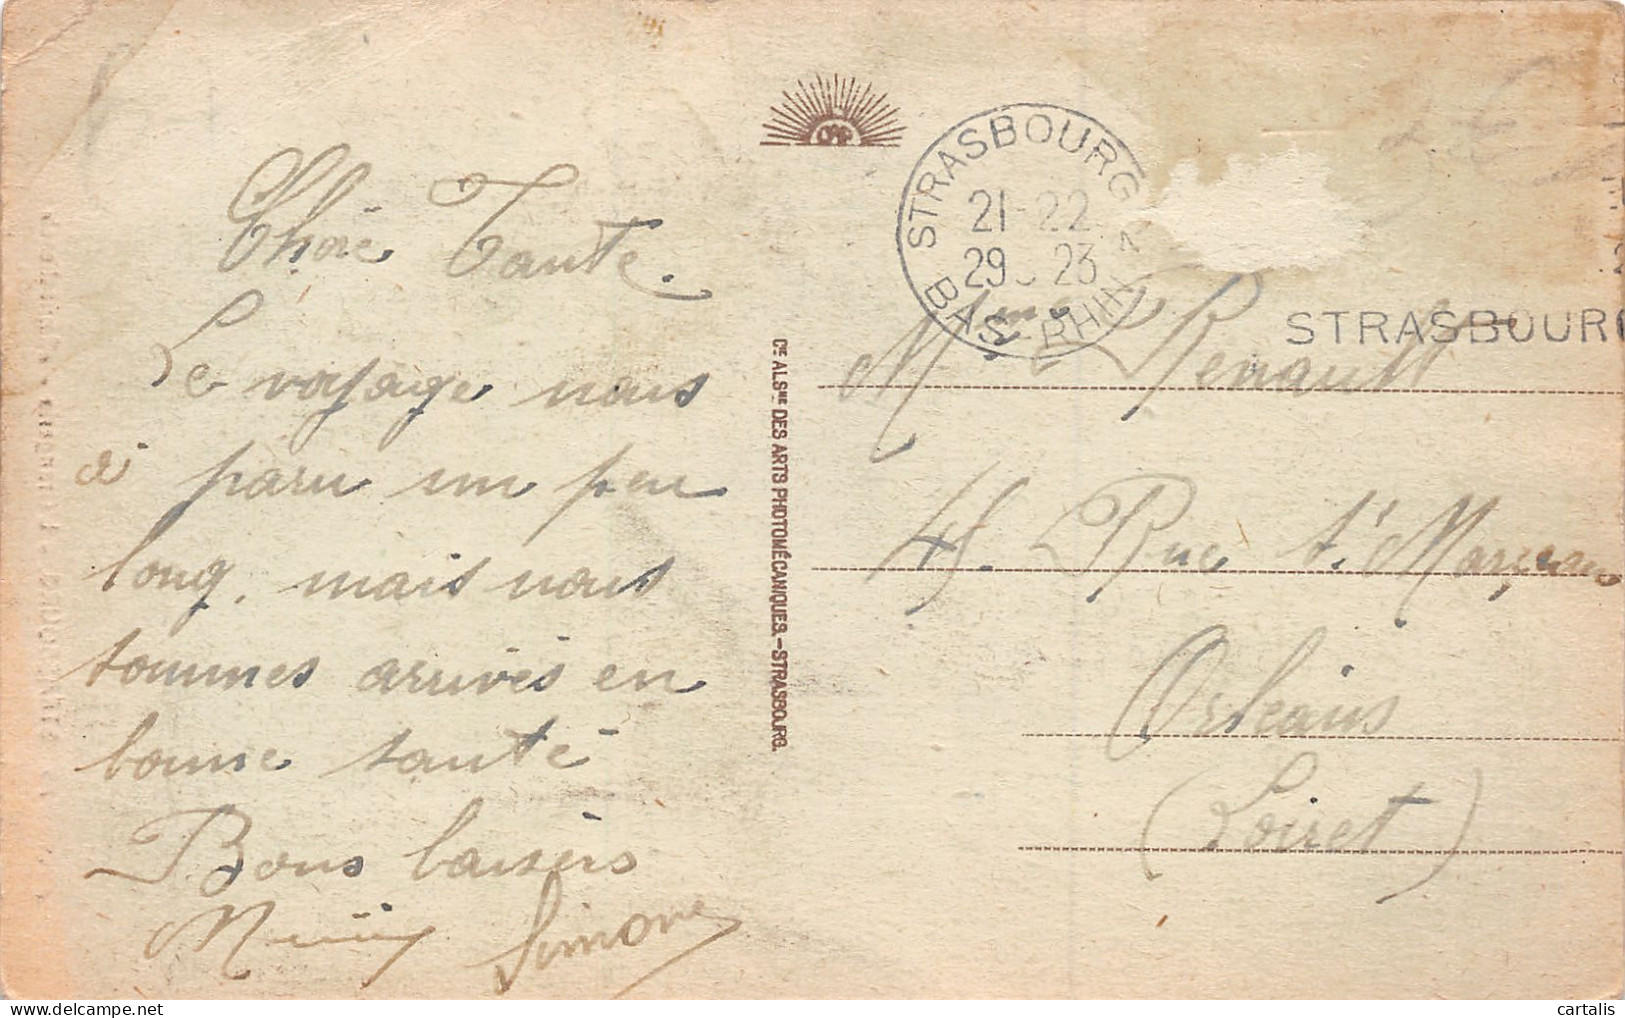 Chère Tante.
Le voyage nous
a paru un peu
long, mais nous
sommes arrivés en
bonne santé
Bons baisers
Simone
Cie ALSne DES ARTS PHOTOMÉCANIQUES.-STRASBOURG.
STRASBOURG
21-22
29 23
BAS-RHIN
STRASBOURG
Mme Renault
45. Rue St Marceau
Orléans
(Loiret)
cartalis